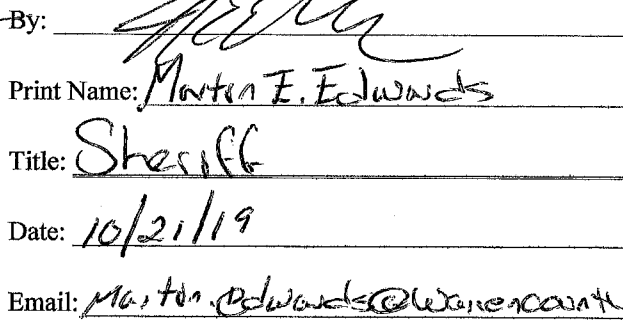 By:
Print Name: Martin E. Edwards
Title: Sheriff
Date: 10/21/19
Email: Martin.Edwards@warrencount